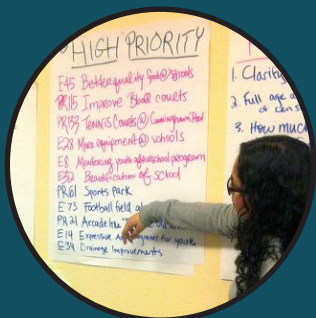 HIGH PRIORITY
E45 Better quality food @ schools
PR115 Improve Bball courts
PR133 Tennis Courts @ Cunningham Pool
E28 More equipment @ schools
E8 Mentoring youth afterschool program
E32 Beautification of school
PR61 Sports Park
E73 Football field
PR21 Arcade
E14 Expressive for youth
E34 Drainage Improvements
1. Clarity
2. Full age
3. How much